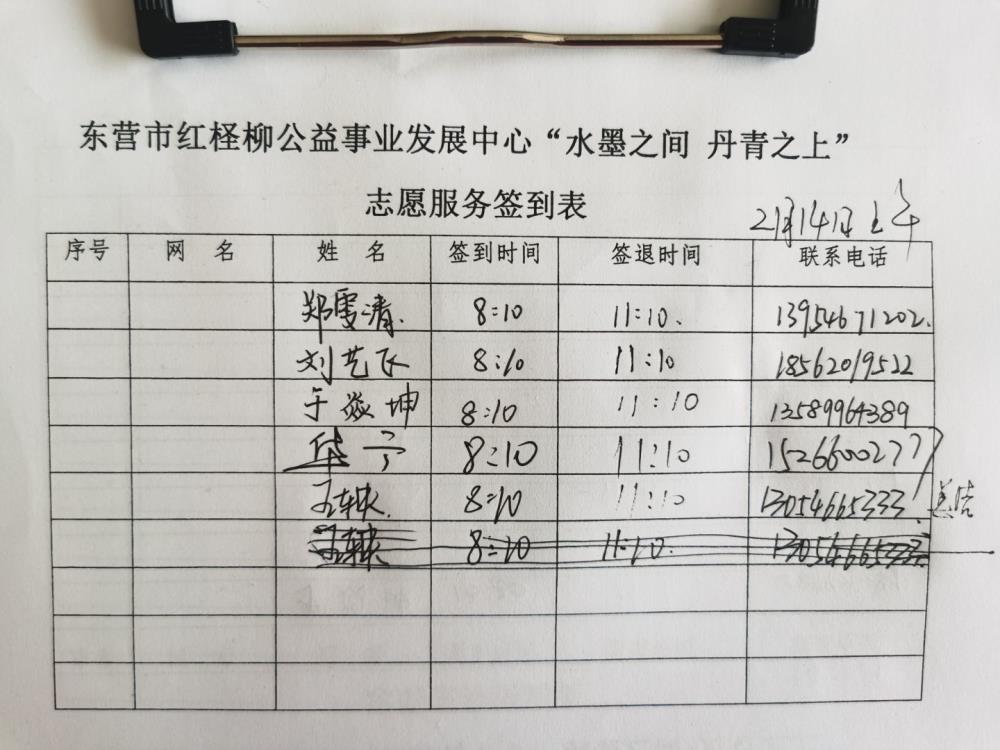 东营市红柽柳公益事业发展中心“水墨之间 丹青之上”
志愿服务签到表
2月14日上午
序号 网 名 姓 名 签到时间 签退时间 联系电话
郑雯清. 8:10 11:10. 13954671202.
刘艺飞 8:10 11:10 18562019522
于焱坤 8:10 11:10 13589964389
8:10 11:10 15266002777
8:10 11:10 13054665333
8:10 11:10. 13054665333